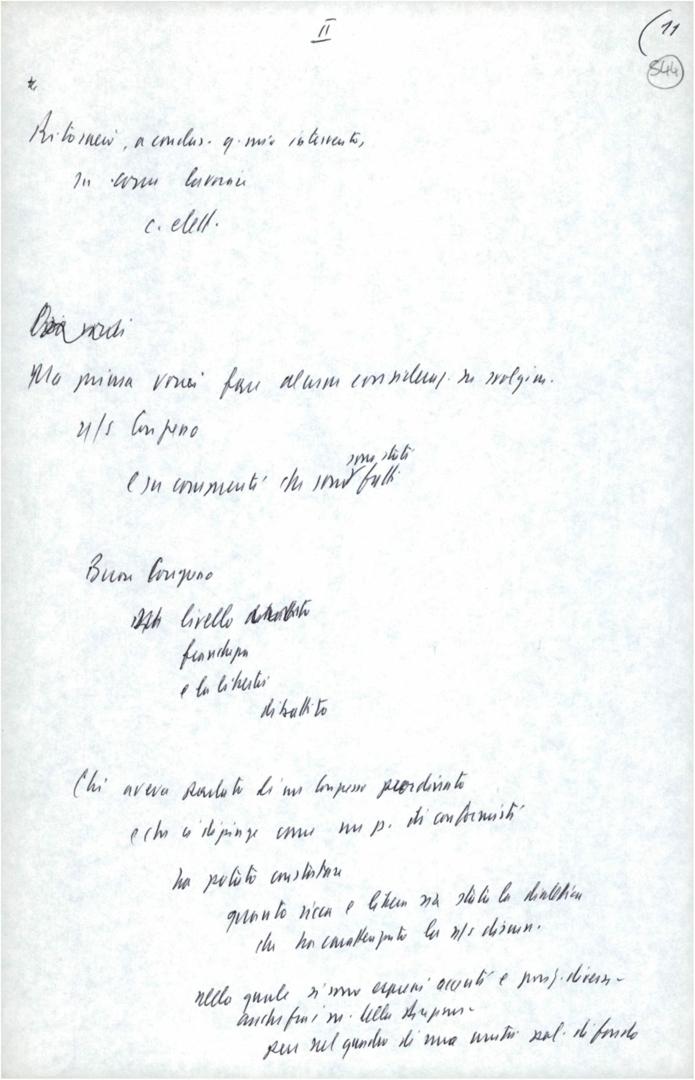 II
(11
544
*
Ritornerò, a conclus. q. mio intervento,
su come lavorare
c. elett.
Ma prima vorrei fare alcune consideraz. su svolgim.
n/s Congresso
e su commenti che sono stati fatti
Buon Congresso
livello
franchezza
e la libertà
dibattito
Chi aveva parlato di un Congresso preordinato
e che ci dipinge come un p. di conformisti
ha potuto constatare
quanto ricca e libera sia stata la dialettica
che ha caratterizzato la n/s discuss.
nella quale si sono espressi accenti e posiz. diverse
anche fra i m. della
pur nel quadro di una unità sul. di fondo